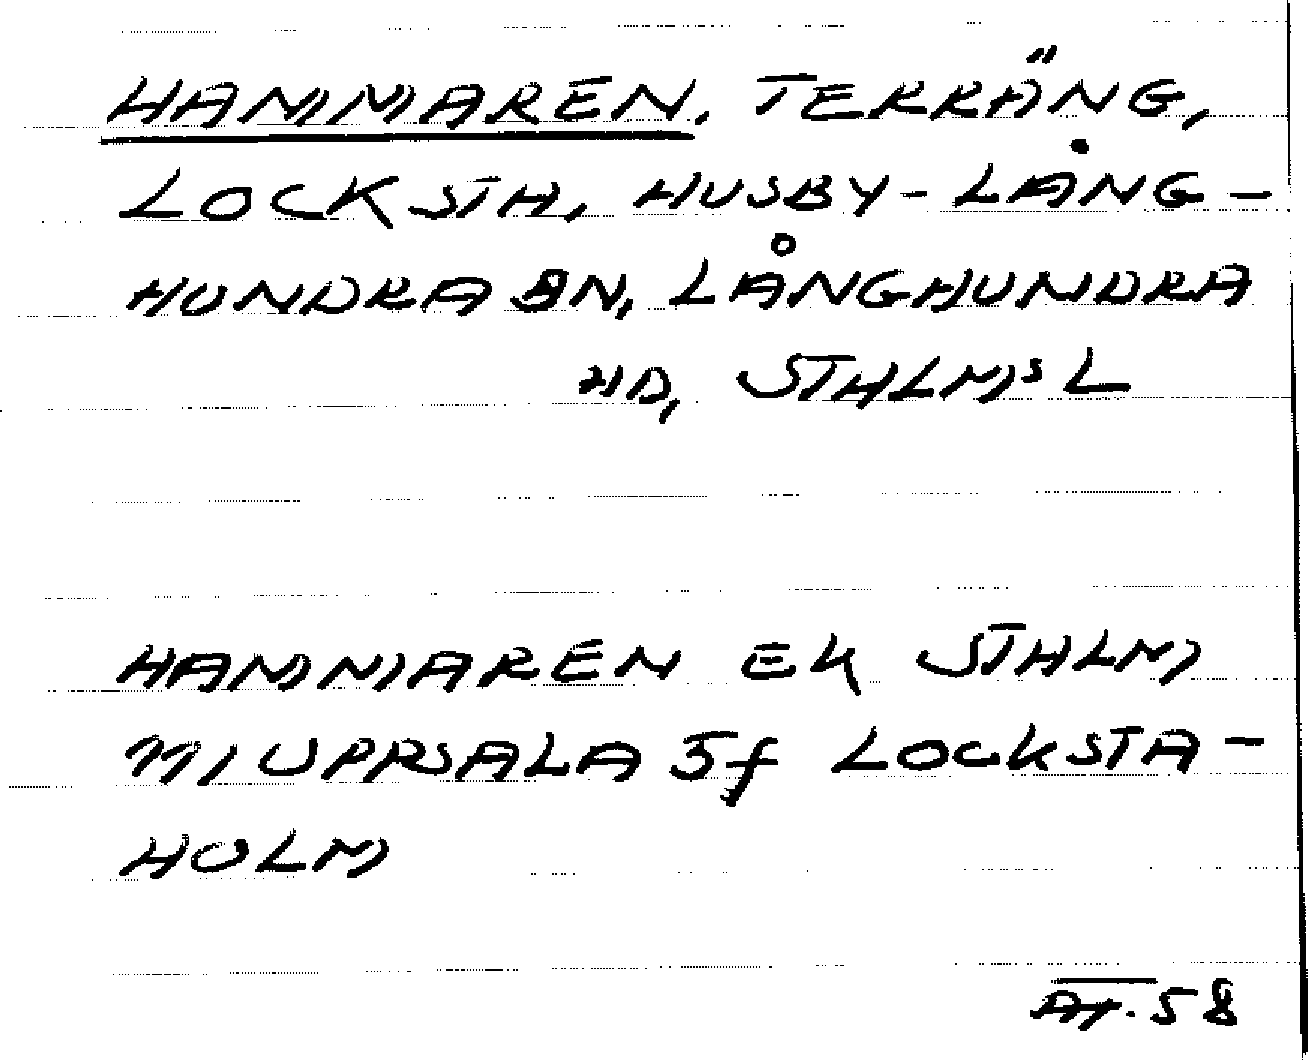 HAMMAREN, TERRÄNG,
LOCKSTA, HUSBY-LÅNG-
HUNDRA SN, LÅNGHUNDRA
HD, STHLMS L
HAMMAREN EK STHLM
UPPSALA 5f LOCKSTA-
HOLM
58